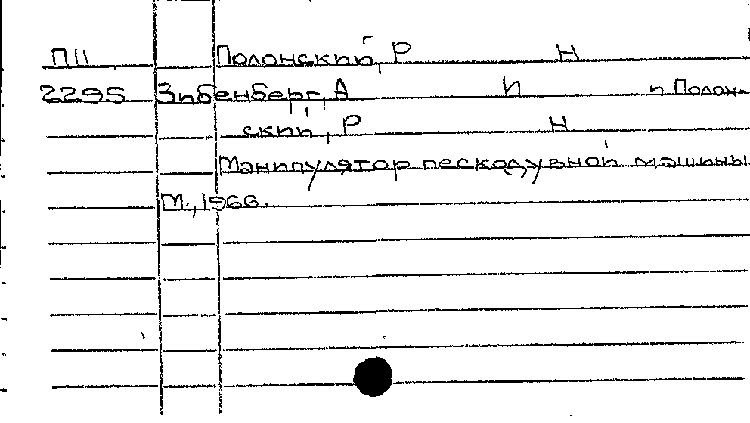 П11 Полонский, Р Н
2295 Зильберберг, А И и Полон-
ский, Р Н
Манипулятор пескодувной машины
М., 1966.